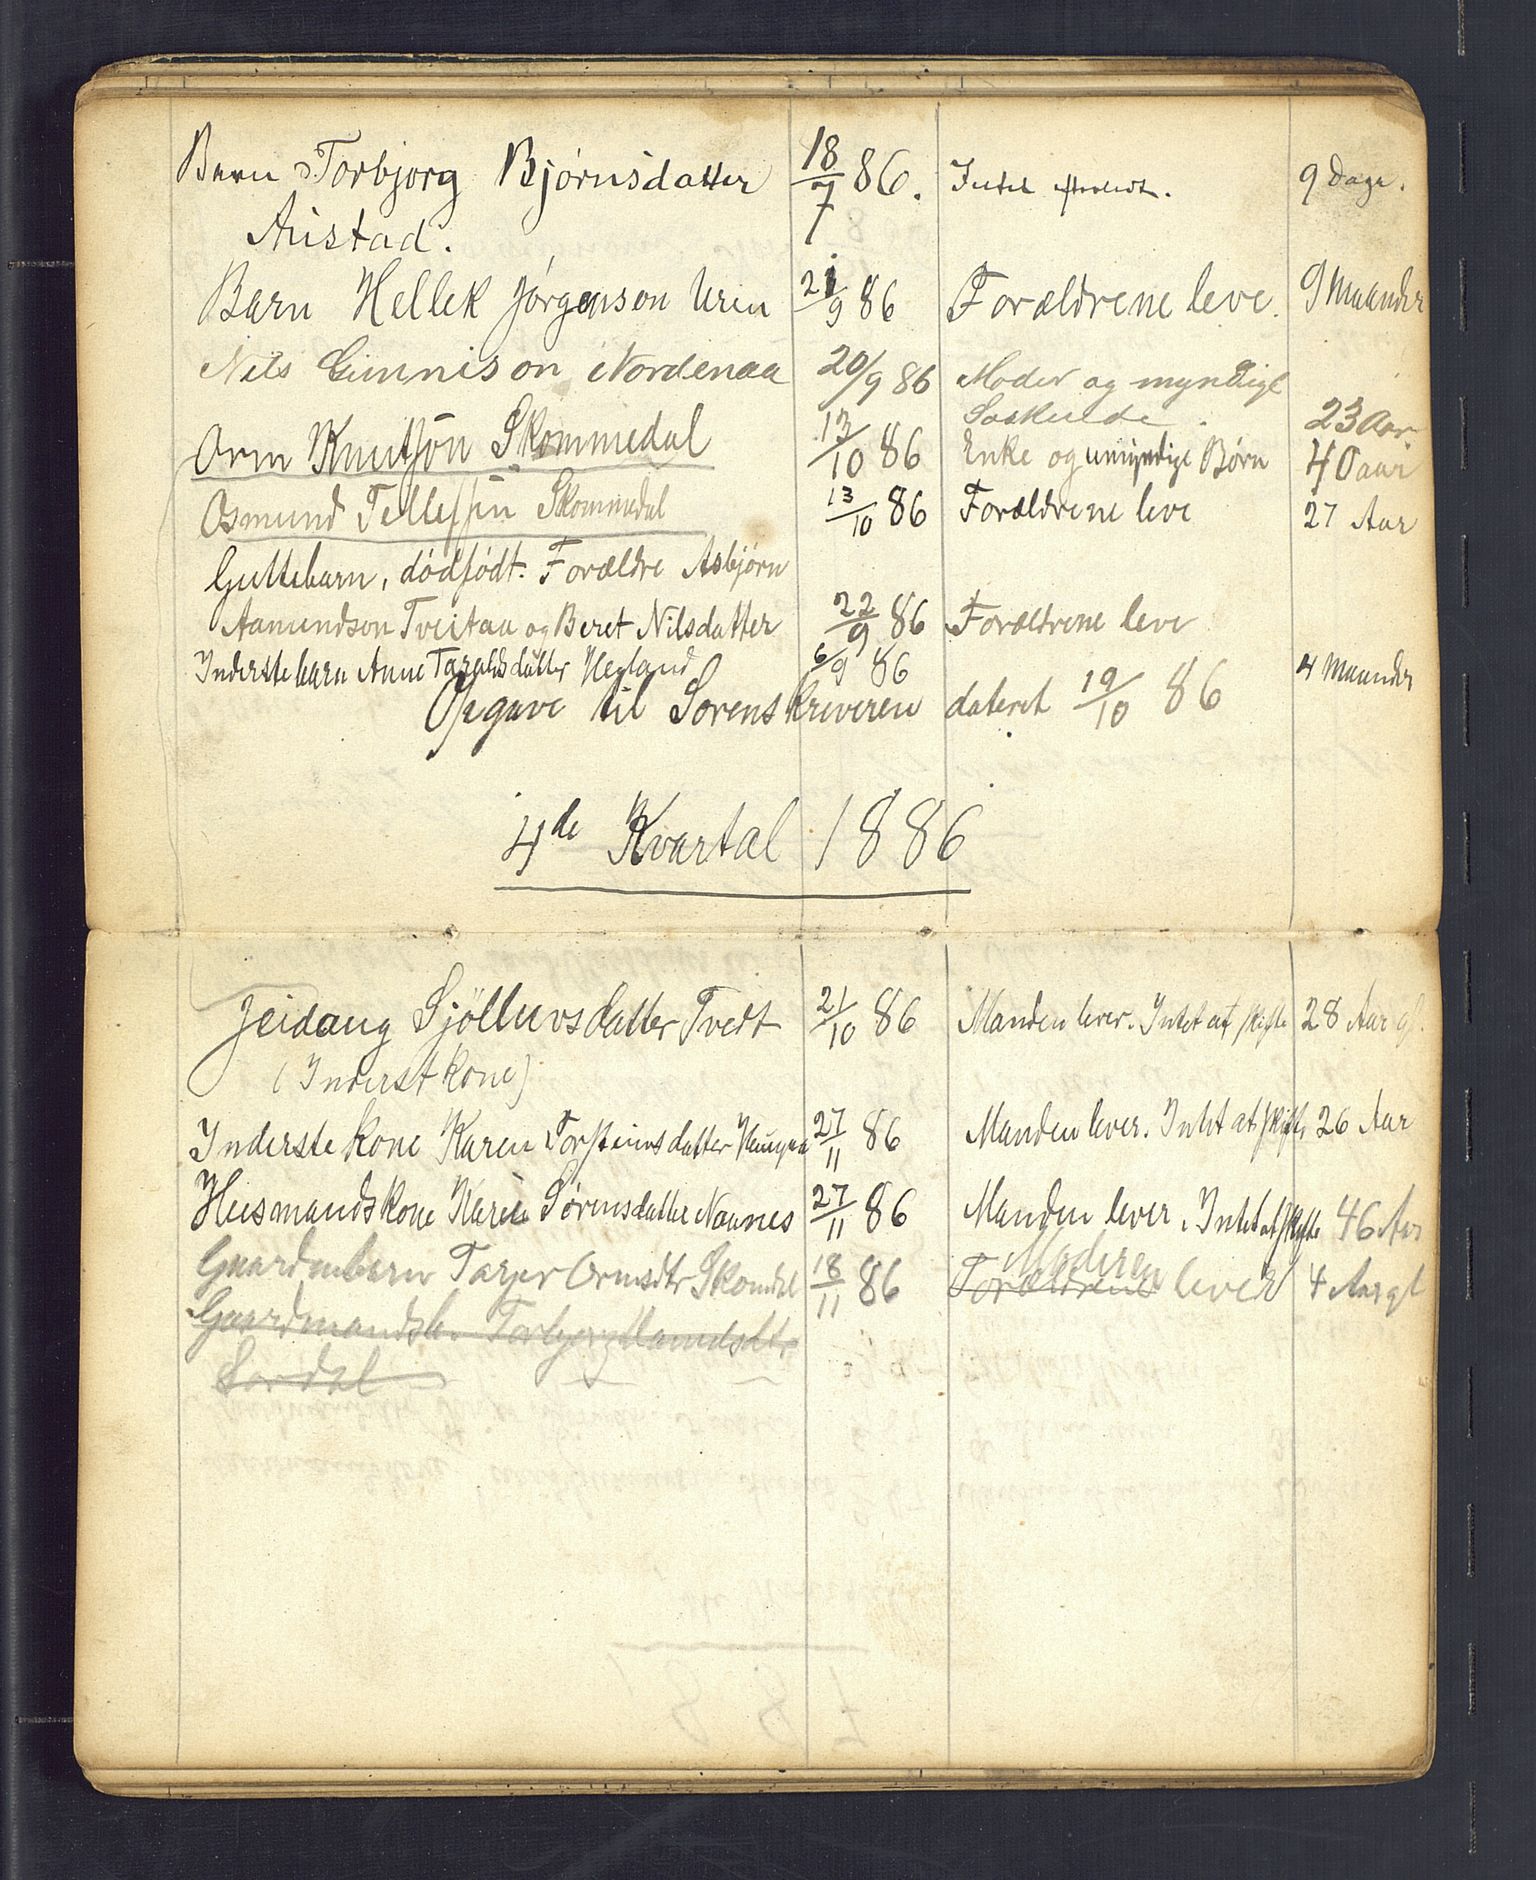 Barn Torbjorg Bjørnsdatter 18/7 86. Intet efterladt. 9 Dage.
Austad.
Barn Hellek Jørgenson Uren 21/9 86 Forældrene leve. 9 Maander
Nils Gunnison Nordenaa 20/9 86 Moder og myndige
Søskende. 23 Aar.
Orm Knutsøn Skommedal 13/10 86 Enke og umyndige Børn 40 aar
Osmund Tellefsen Skommedal 13/10 86 Forældrene leve 27 Aar
Guttebarn, dødfødt. Forældre Asbjørn
Aamundson Tveitaa og Beret Nilsdatter 22/9 86 Forældrene leve
Inderstebarn Anne Taraldsdatter Hegland 6/9 86 4 Maander
Opgave til Sorenskriveren dateret 19/10 86
4de Kvartal 1886
Jeidaug Gjölluvsdatter Tveit 21/10 86 Manden lever. Intet at skifte 28 Aar gl.
(Inderstkone)
Inderste kone Karen Torsteinsdatter Haugaa 27/11 86 Manden lever. Intet at skift. 26 Aar
Husmandskone Karen Sørensdatter Naanes 27/11 86 Manden lever. Intet at skifte 46 Aar
Moderen
Gaardmbarn Tarjer Ormsdtr Skomdal 18/11 86 Forældrene lever 4 Aar gl
Gaardmandsb. Torbjorg Aamdsdtr
Sordal